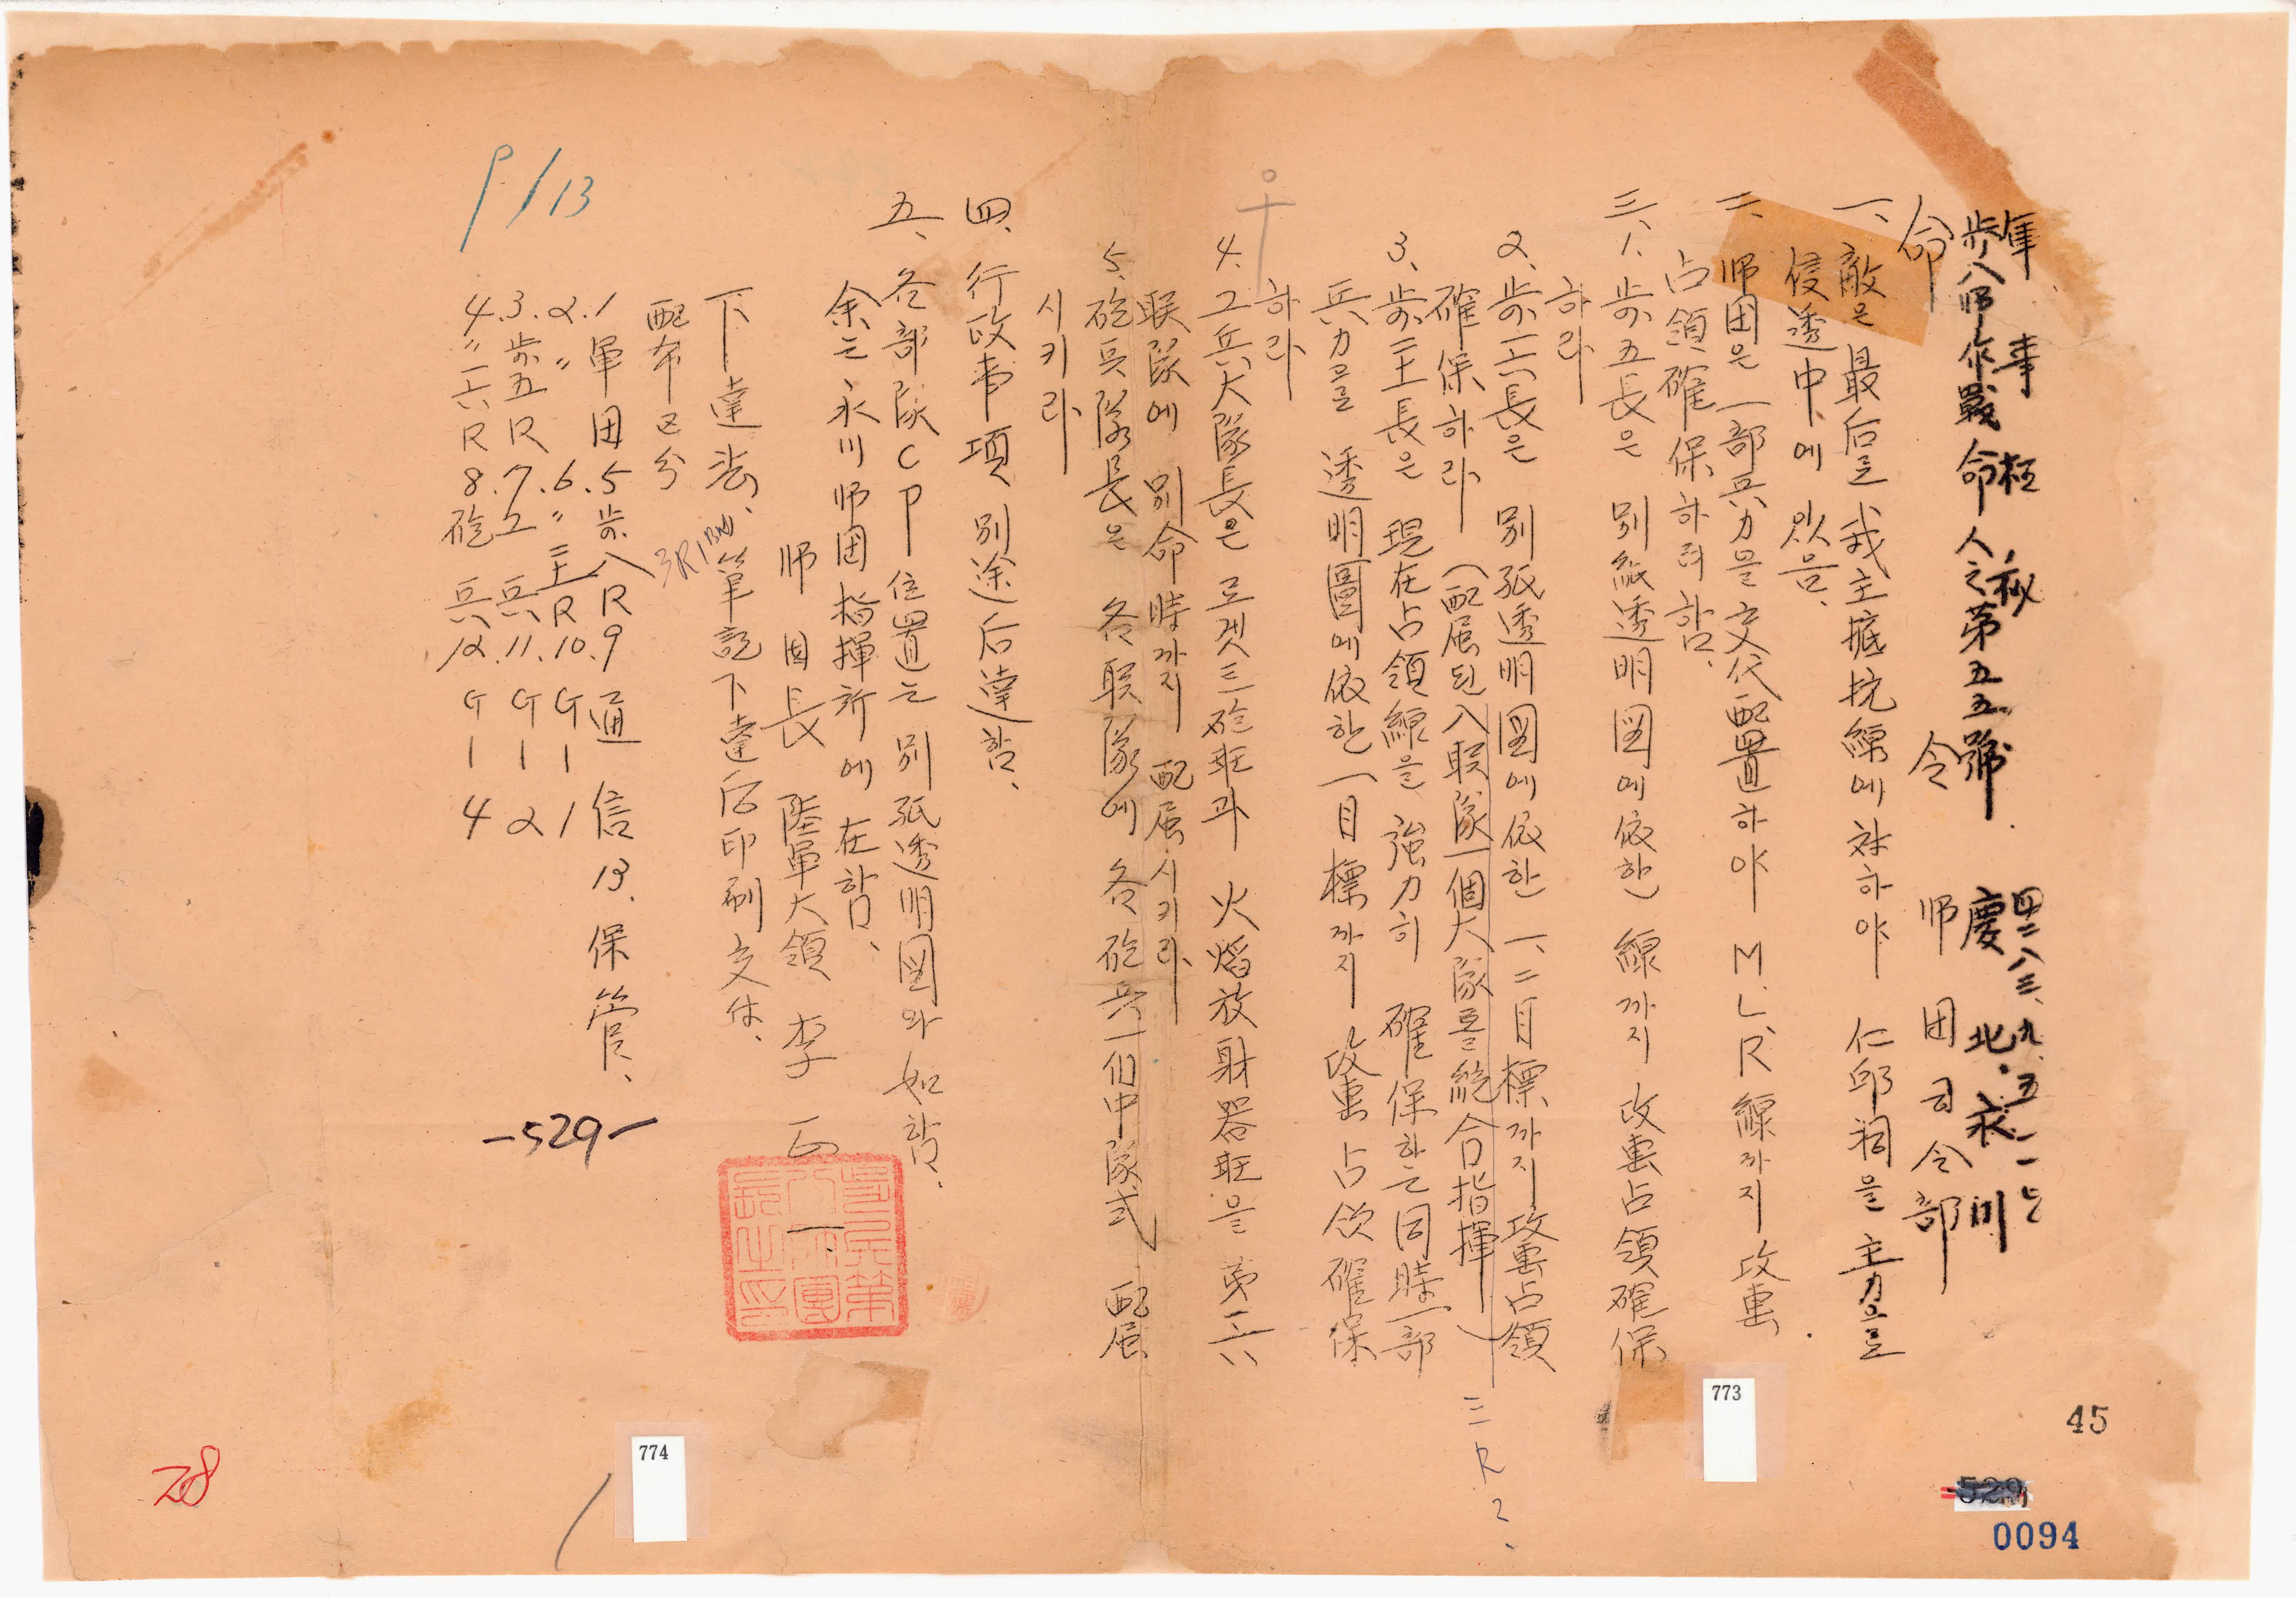 軍事極秘 四二八三、九、五、一一는
步八師作戰命令第五五號 慶北永川
師団司令部
命令
一、敵은 最后로 我主抵抗線에 対하야 仁邱洞을 主力으로
侵透中에 있음、
二、師団은 一部兵力을 交代配置하야 M.L.R 線까지 攻擊
占領確保하려 함、
三、1、步五長은 別紙透明図에 依한 線까지 攻擊占領確保
하라
2、步一六長은 別紙透明図에 依한 一、二目標까지 攻擊占領
確保하라 (配属된 八联隊一個大隊를 統合指揮)
三R2、
3、步二一長은 現在占領線을 強力히 確保하는 同時 一部
兵力으로 透明圖에 依한 一目標까지 攻擊占領確保
하라
4、工兵大隊長은 로켓트砲班과 火焰放射器班을 第一六
联隊에 別命時까지 配属시키라
5、砲兵隊長은 各联隊에 各砲兵一個中隊式 配属
시키라
四、行政事項 別途后達함、
五、各部隊CP位置는 別紙透明図와 如함、
余는 永川師団指揮所에 在함、
師団長 陸軍大領 李 正 一
下達法、筆記下達后印刷交付、
配布区分 3R1BN
1 軍団 5. 步八R 9 通信 13. 保管、
2. 〃 6. 〃二一R 10. G1 1
3. 步五R 7. 工兵 11. G1 2
4. 〃一六R 8. 砲兵 12. G1 4
P/13
-529-
28
774
773
45
529
0094